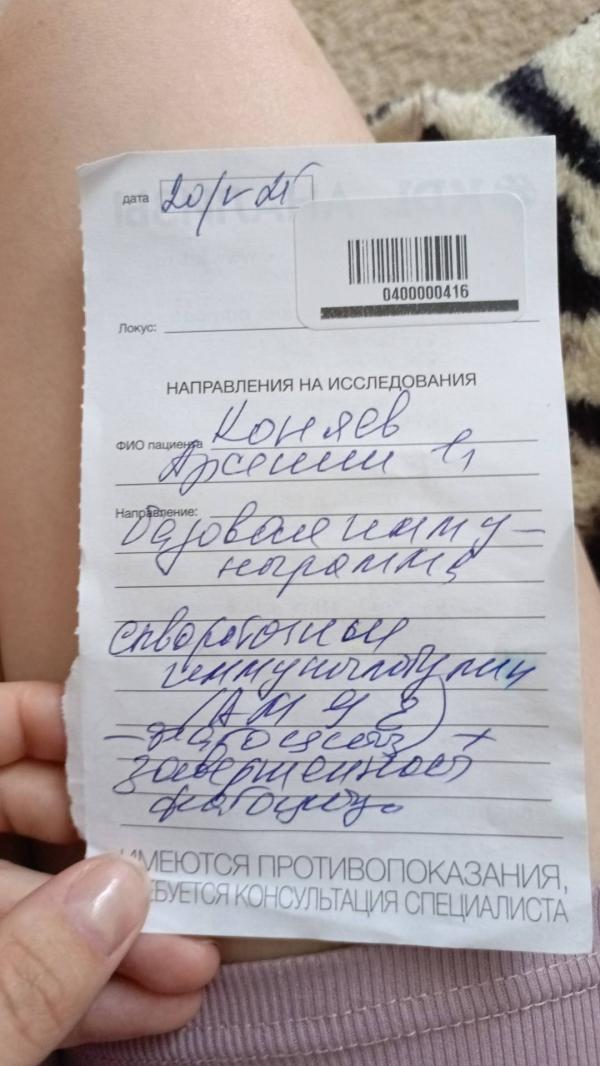 дата 20/V 25
0400000416
Локус:
НАПРАВЛЕНИЯ НА ИССЛЕДОВАНИЯ
ФИО пациента Коняев
Арсений
Направление: Базовая имму-
нограмма
сывороточный
иммуноглобулин
(A M G E)
- фагоцитоз +
завершенность
фагоцитоза
ИМЕЮТСЯ ПРОТИВОПОКАЗАНИЯ,
ТРЕБУЕТСЯ КОНСУЛЬТАЦИЯ СПЕЦИАЛИСТА